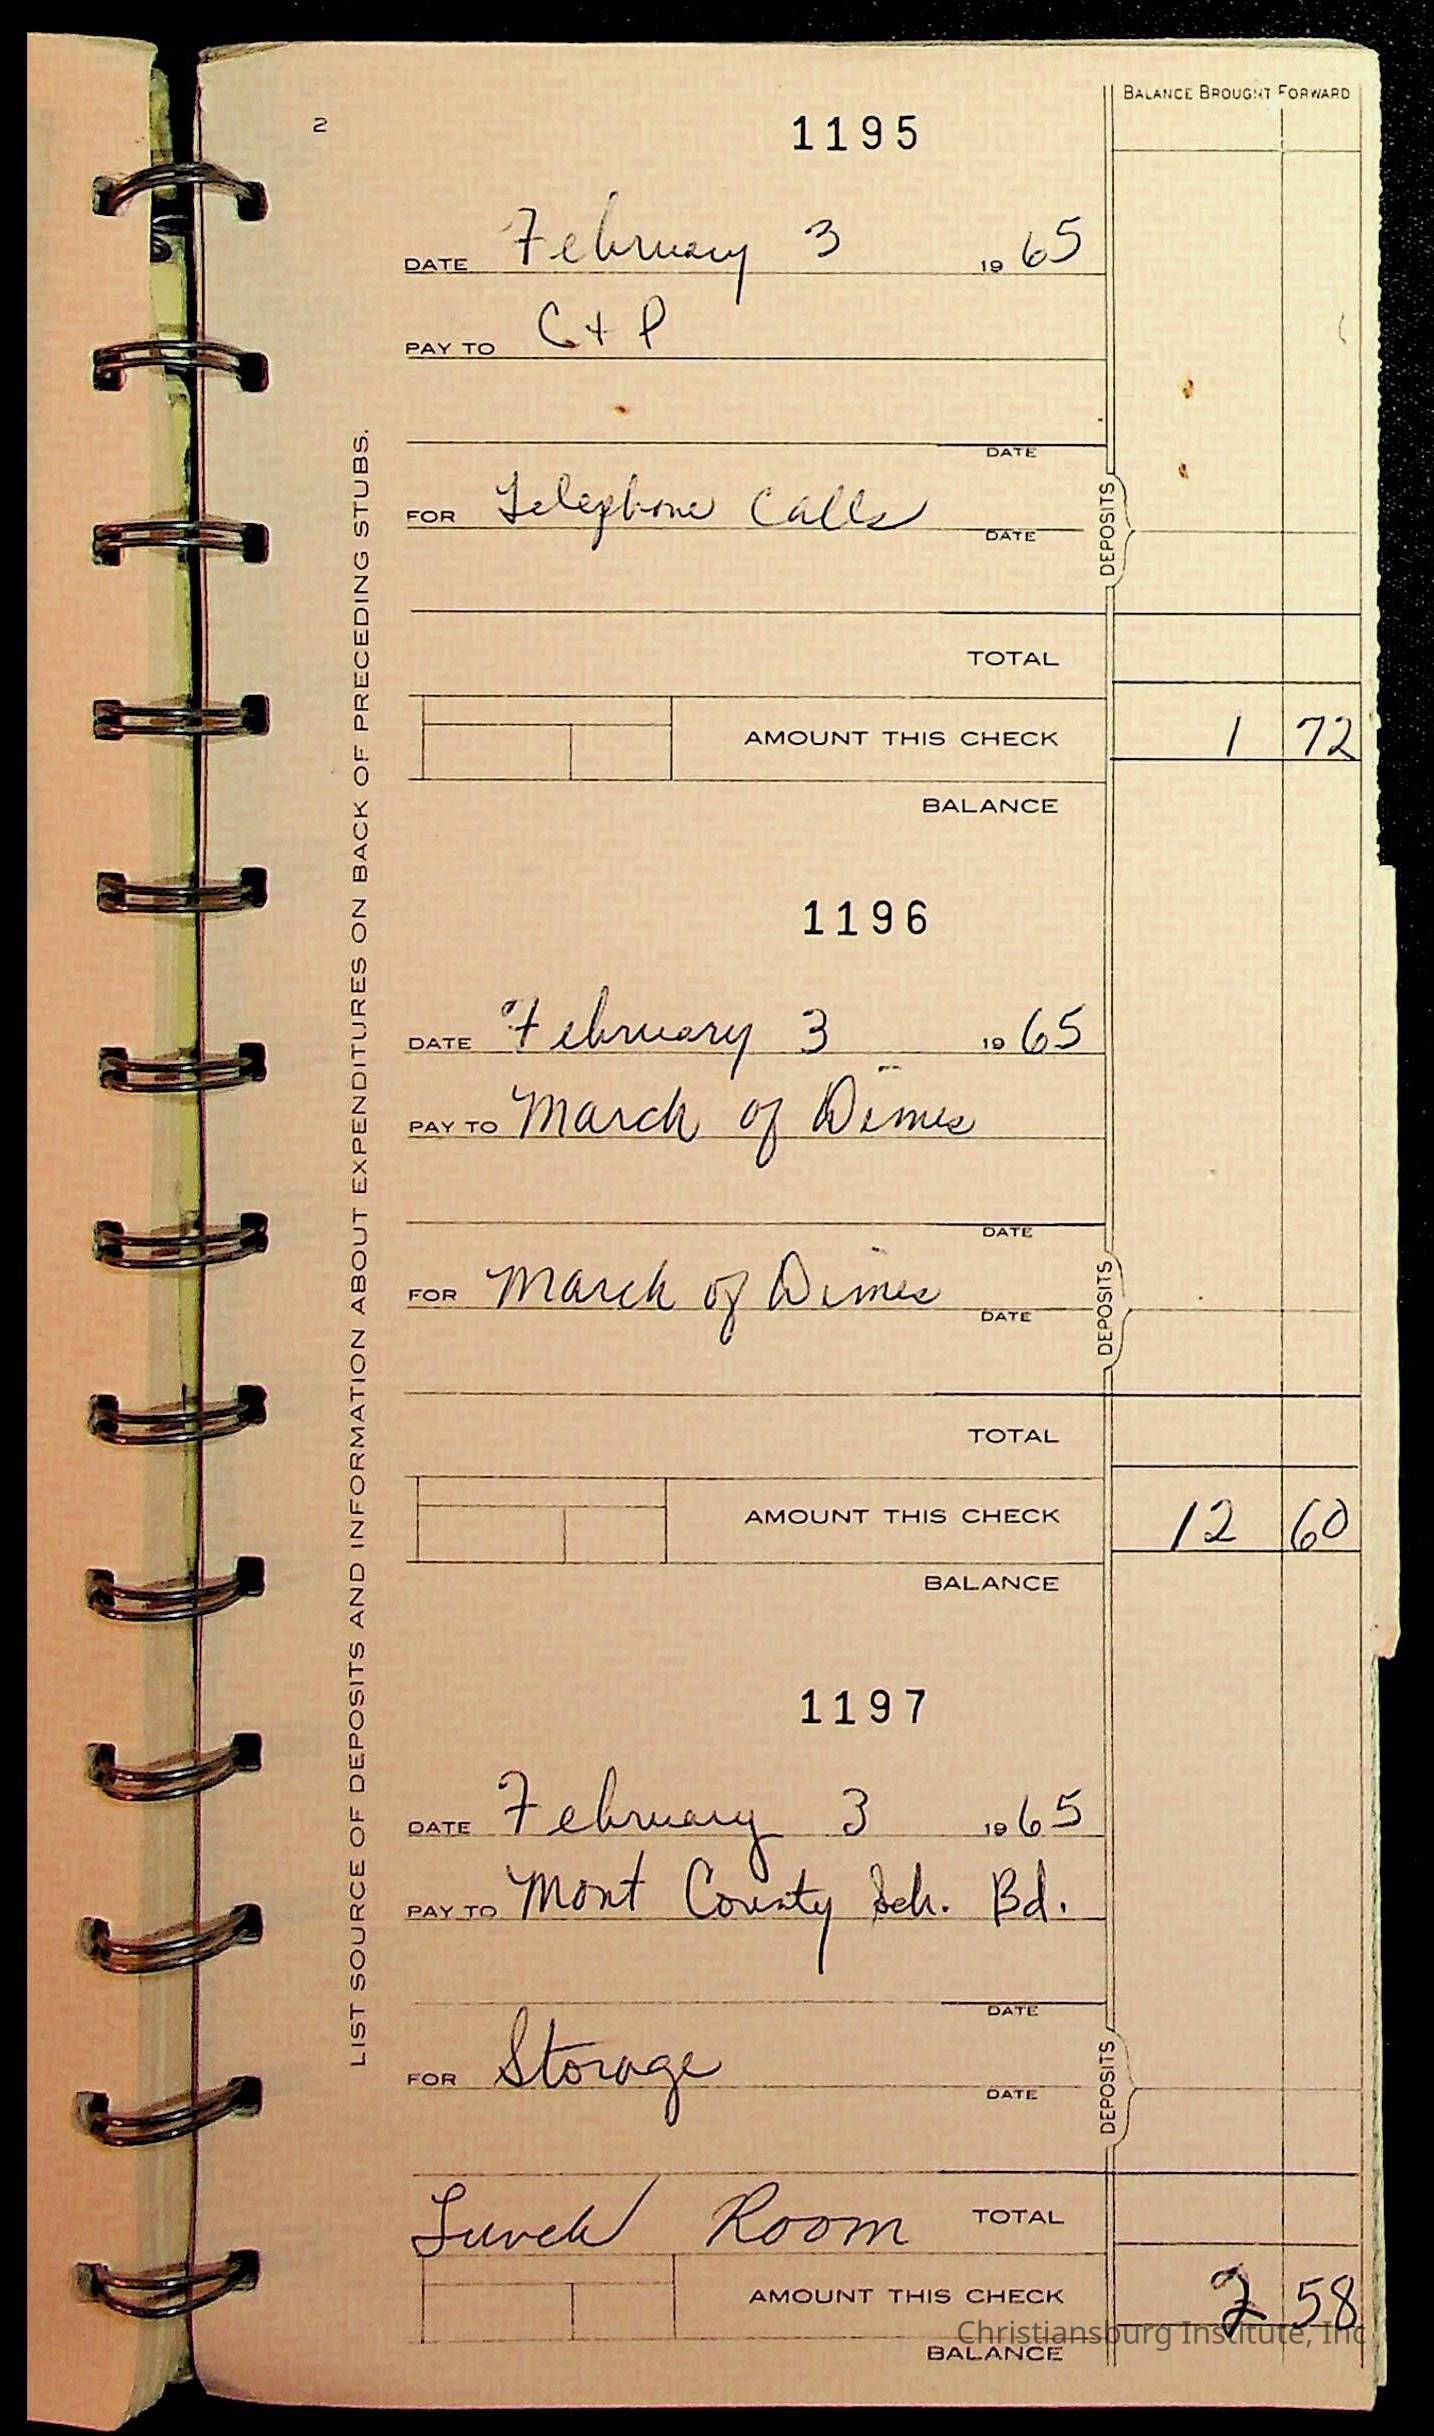 2
BALANCE BROUGHT FORWARD
1195
DATE February 3 1965
PAY TO C+P
DATE
FOR Telephone Calls
DATE
DEPOSITS
TOTAL
AMOUNT THIS CHECK 1 72
BALANCE
LIST SOURCE OF DEPOSITS AND INFORMATION ABOUT EXPENDITURES ON BACK OF PRECEDING STUBS.
1196
DATE February 3 1965
PAY TO March of Dimes
DATE
FOR March of Dimes
DATE
DEPOSITS
TOTAL
AMOUNT THIS CHECK 12 60
BALANCE
1197
DATE February 3 1965
PAY TO Mont County Sch. Bd.
DATE
FOR Storage
DATE
DEPOSITS
Lunch Room TOTAL
AMOUNT THIS CHECK 2 58
Christiansburg Institute, Inc
BALANCE